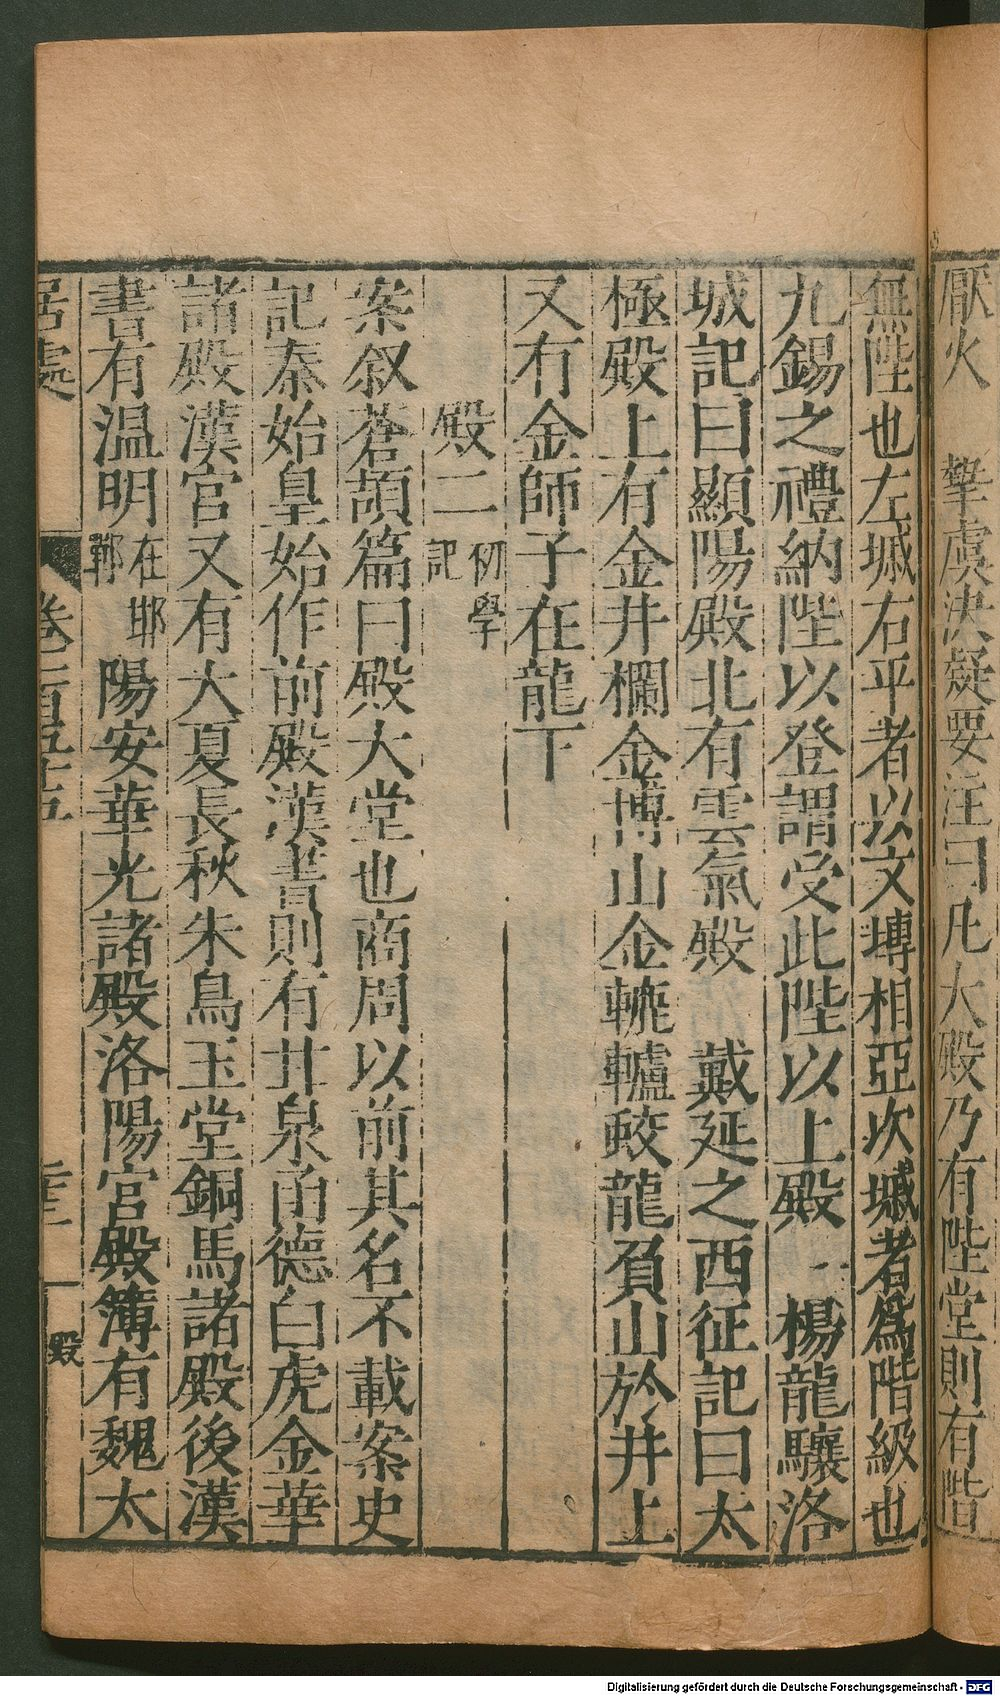 厭火　摯虞決疑要注曰凡大殿乃有陛堂則有階
無陛也左墄右平者以文塼相亞次墄者爲階級也
九錫之禮納陛以登謂受此陛以上殿　楊龍驤洛
城記曰顯陽殿北有雲氣殿　戴延之西征記曰太
極殿上有金井欄金博山金轆轤蛟龍負山於井上
又有金師子在龍下
殿二初學記
案叙蒼頡篇曰殿大堂也商周以前其名不載案史
記秦始皇始作前殿漢書則有甘泉甬德白虎金華
諸殿漢官又有大夏長秋朱鳥玉堂銅馬諸殿後漢
書有温明在邯鄲陽安華光諸殿洛陽官殿簿有魏太
居處　卷二百五十五　二十二　殿
Digitalisierung gefördert durch die Deutsche Forschungsgemeinschaft - DFG